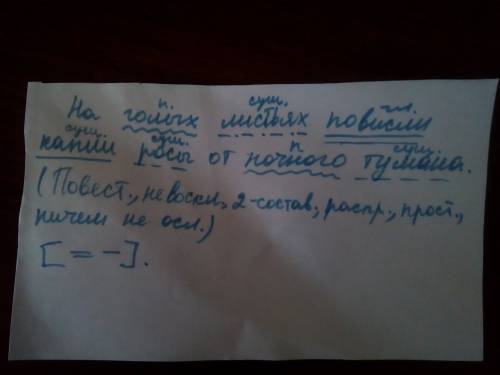 п. сущ. гл.
На голых листьях повисли
сущ. сущ. п сущ.
капли росы от ночного тумана.
(Повест., невоскл, 2-состав, распр., прост.,
ничем не осл.)
[= -].